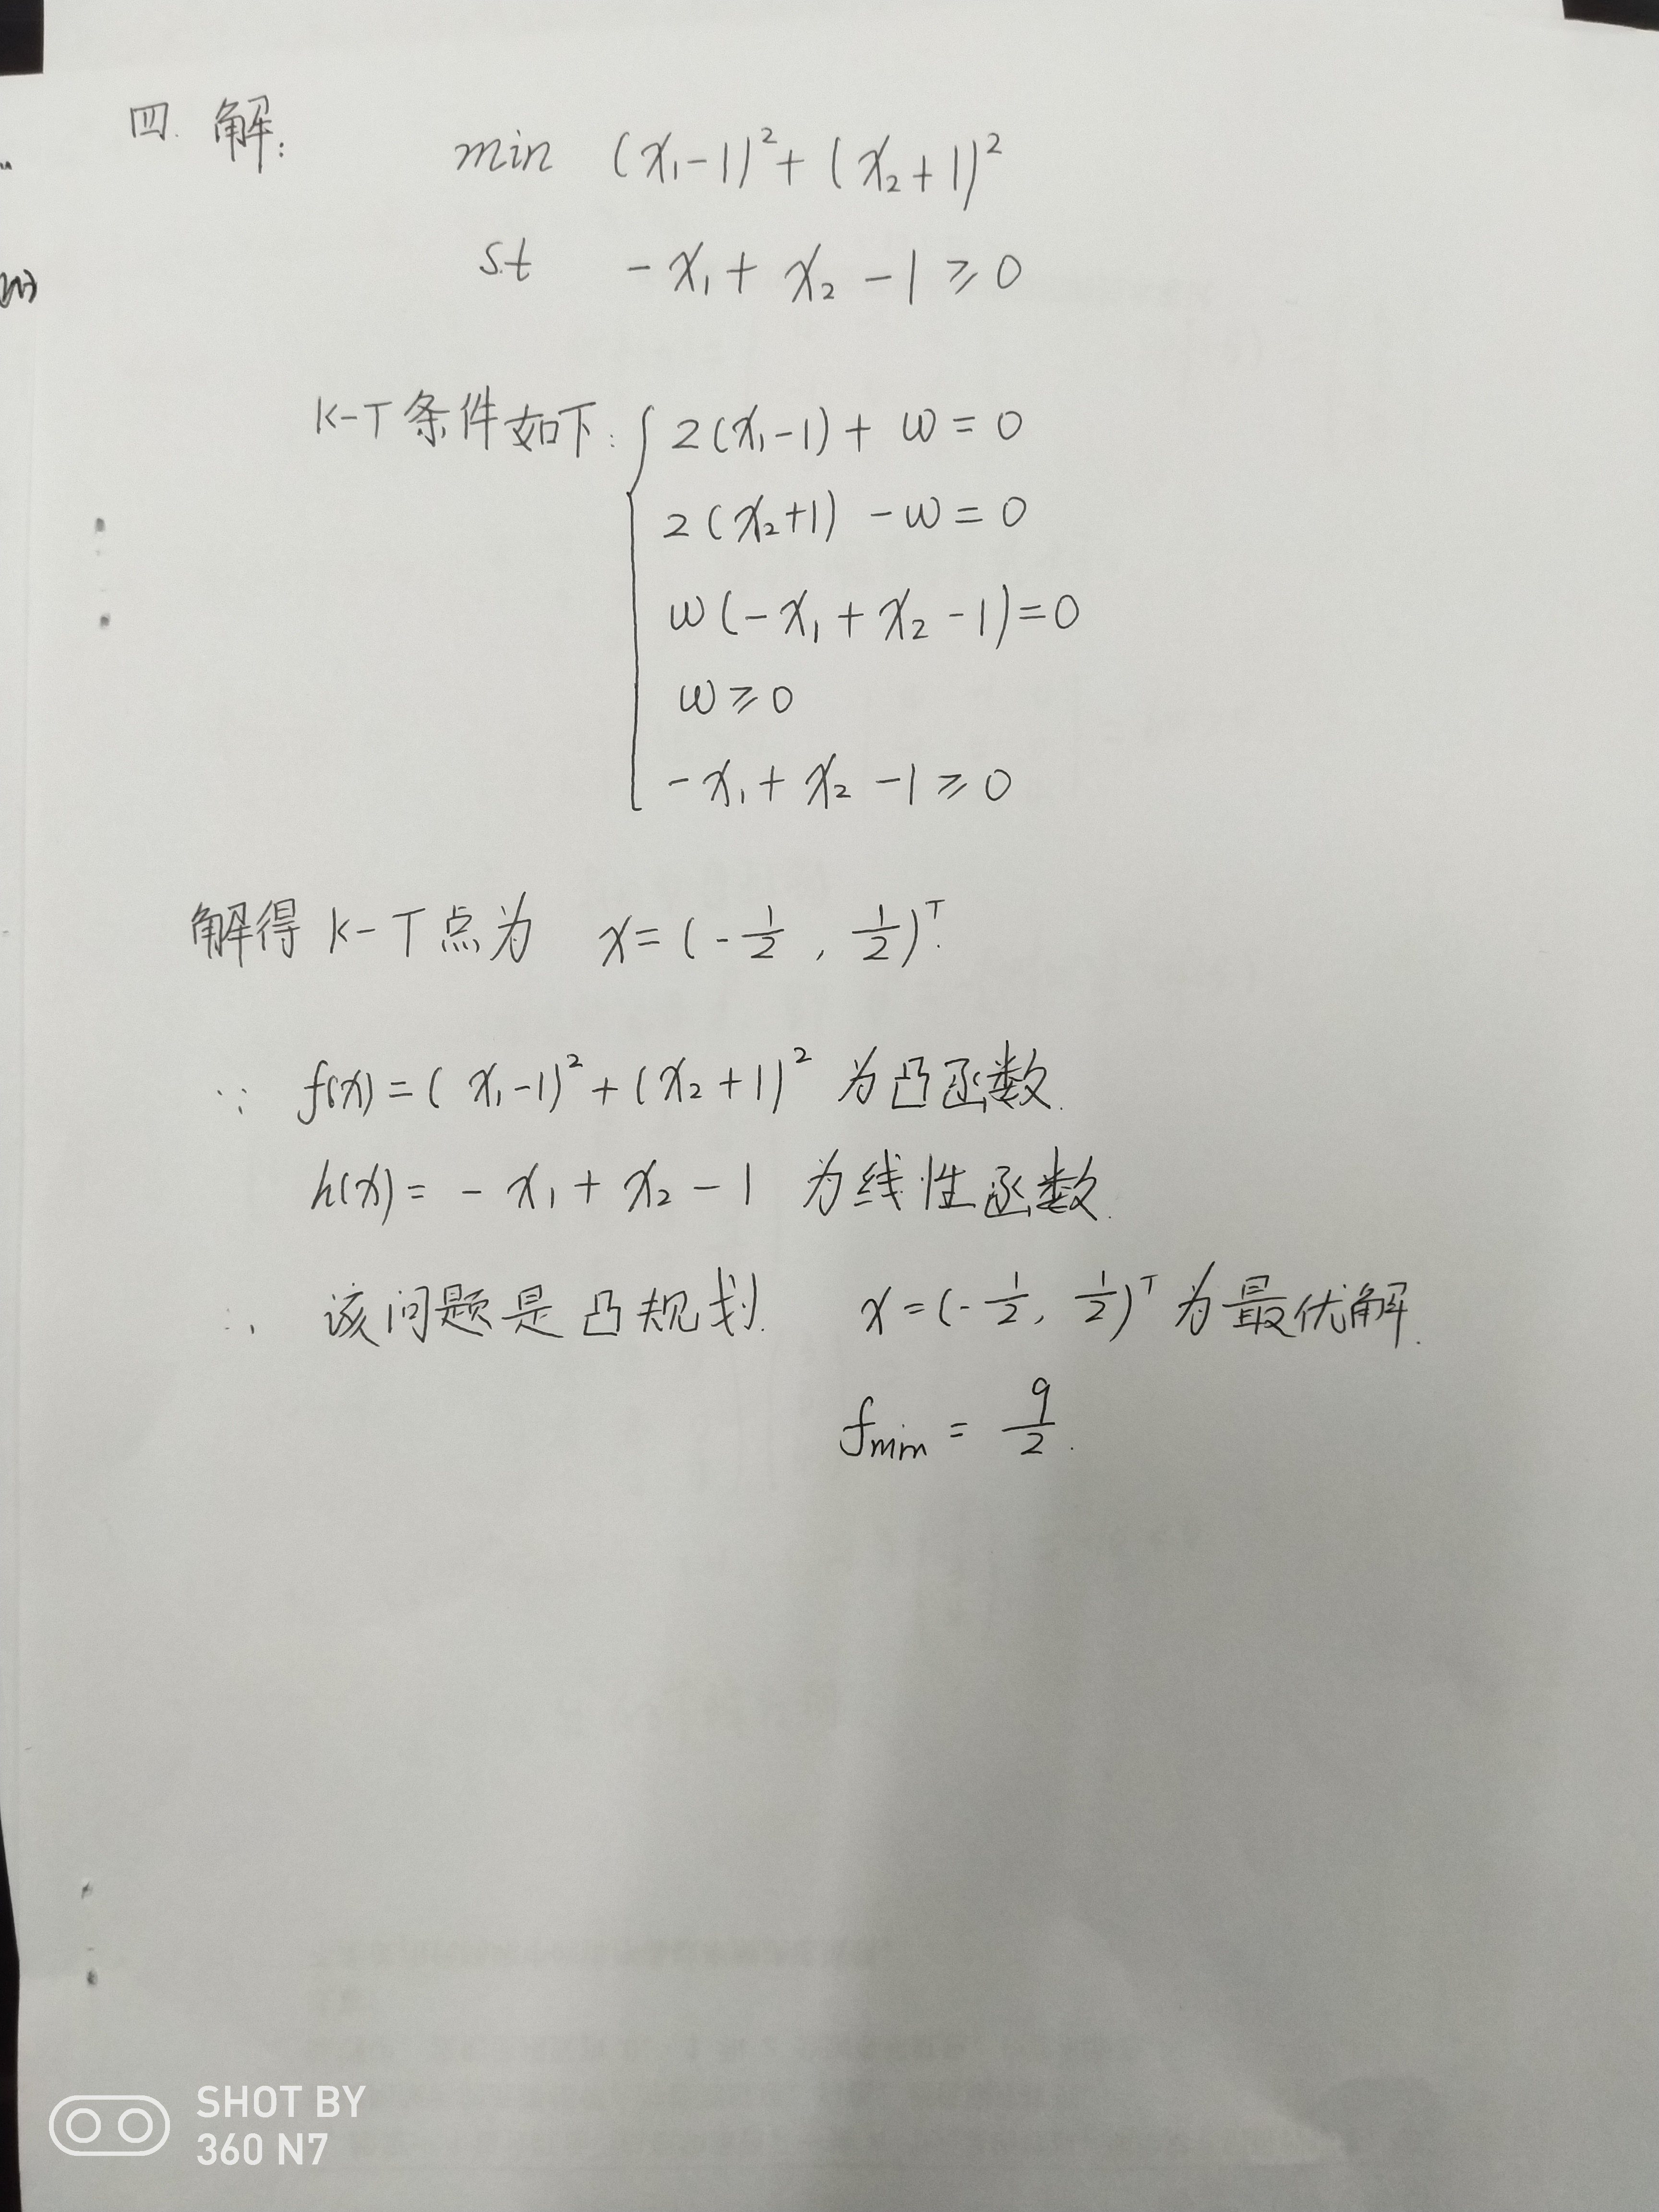 四. 解:
min (x₁-1)²+(x₂+1)²
s.t -x₁+x₂-1≥0
K-T条件如下: { 2(x₁-1)+w=0
2(x₂+1)-w=0
w(-x₁+x₂-1)=0
w≥0
-x₁+x₂-1≥0
解得K-T点为 x=(-1/2, 1/2)ᵀ.
∵ f(x)=(x₁-1)²+(x₂+1)² 为凸函数.
h(x)=-x₁+x₂-1 为线性函数.
∴ 该问题是凸规划. x=(-1/2, 1/2)ᵀ为最优解.
fmin = 9/2.
SHOT BY
360 N7